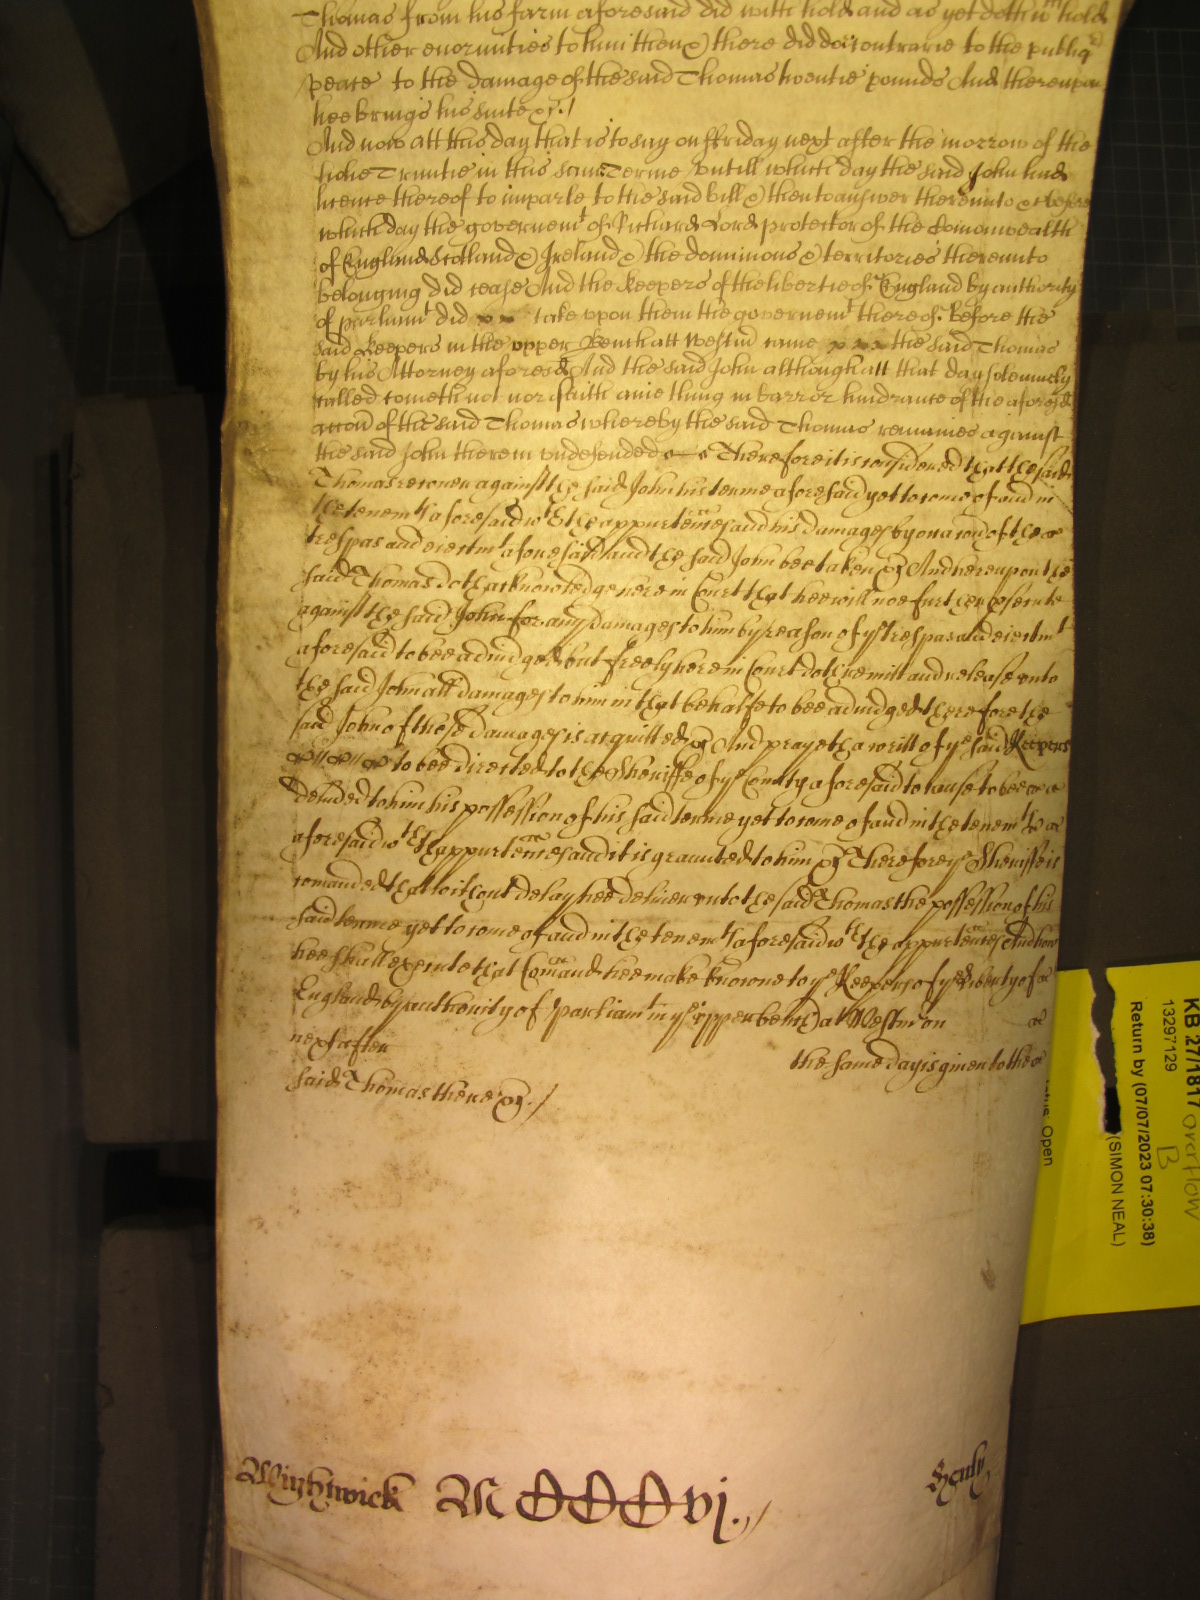 Thomas from his farm aforesaid did with hold and as yet doth wth hold
And other enormities to him then & there did do contrarie to the publiq
peace to the damage of the said Thomas twentie pounds And thereupon
hee brings his suite &c./
And now att this day that is to say on ffriday next after the morrow of the
holie Trinitie in this same Terme untill which day the said John had
licence thereof to imparle to the said bill & then to answer thereunto &c before
which day the governemt of Richard Lord protector of the Comonwealth
of England Scotland & Ireland & the dominions & territories thereunto
belonging did cease And the Keepers of the libertie of England by authority
of parliamt did take upon them the governemt thereof. Before the
said Keepers in the upper Bench att Westm came the said Thomas
by his Attorney aforesd And the said John although att that day solemnely
called cometh not nor saith anie thing in barr or hindrance of the aforesd
accon of the said Thomas whereby the said Thomas remaines against
the said John therein undefended Therefore it is considered that the said
Thomas recover against the said John his terme aforesaid yet to come of and in
the tenemts aforesaid wth the appurtences and his damages by occasion of the
trespas and eiectmt aforesaid and the said John bee taken &c And hereupon the
said Thomas doth acknowledge here in Court that hee will noe further prosecute
against the said John for any damages to him by reason of ye trespas and eiectmt
aforesaid to bee adiudged but freely here in Court doth remitt and release unto
the said John all damages to him in that behalfe to bee adiudged therefore the
said John of those damages is acquitted &c And prayeth a writt of ye said Keepers
to bee directed to the Sheriffe of ye County aforesaid to cause to bee
delivered to him his possession of his said terme yet to come of and in the tenemts
aforesaid wth th appurtences and it is graunted to him &c Therefore ye Sheriffe is
comanded that without delay hee deliver unto the said Thomas the possession of his
said terme yet to come of and in the tenemts aforesaid wth the appurtences And how
hee shall execute that Comand hee make knowne to ye Keepers of ye liberty of
England by authority of Parliamt in ye upper bench at Westm on
next after the same day is given to the
said Thomas there &c./
Wightwick MCCCvj./ Henly
KB 27/1817 overflow
B
13297129
Return by (07/07/2023 07:30:38)
(SIMON NEAL)
Open